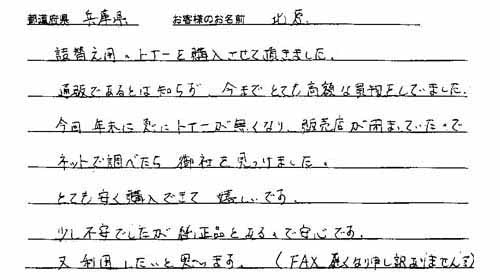 都道府県 兵庫県 お客様のお名前 北原
詰替え用のトナーを購入させて頂きました。
通販であるとは知らず、今までとても高額な買物をしていました。
今回年末に急にトナーが無くなり、販売店が閉まっていたので
ネットで調べたら御社を見つけました。
とても安く購入できて嬉しいです。
少し不安でしたが純正品とあるので安心です。
又利用したいと思います。 (FAX 遅くなり申し訳ありません)